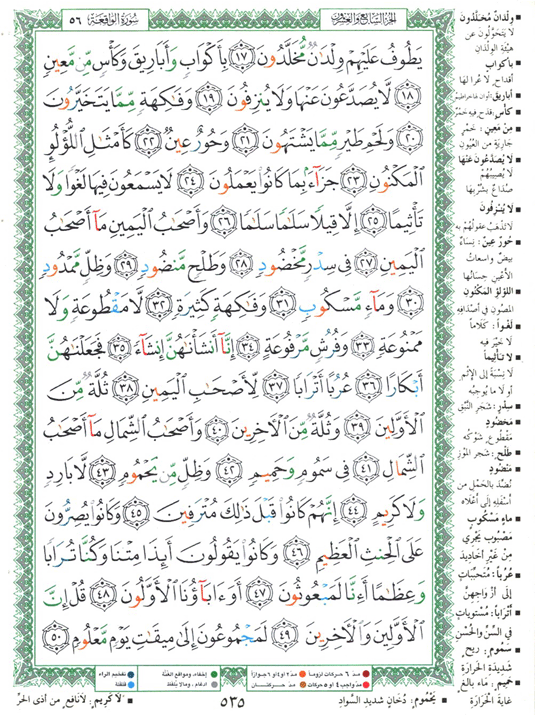 الجزء السابع والعشرون
سورة الواقعة ٥٦
يَطُوفُ عَلَيْهِمْ وِلْدَٰنٌ مُّخَلَّدُونَ ١٧ بِأَكْوَابٍ وَأَبَارِيقَ وَكَأْسٍ مِّن مَّعِينٍ
١٨ لَّا يُصَدَّعُونَ عَنْهَا وَلَا يُنزِفُونَ ١٩ وَفَٰكِهَةٍ مِّمَّا يَتَخَيَّرُونَ
٢٠ وَلَحْمِ طَيْرٍ مِّمَّا يَشْتَهُونَ ٢١ وَحُورٌ عِينٌ ٢٢ كَأَمْثَٰلِ اللُّؤْلُؤِ
الْمَكْنُونِ ٢٣ جَزَآءً بِمَا كَانُوا يَعْمَلُونَ ٢٤ لَا يَسْمَعُونَ فِيهَا لَغْوًا وَلَا
تَأْثِيمًا ٢٥ إِلَّا قِيلًا سَلَٰمًا سَلَٰمًا ٢٦ وَأَصْحَٰبُ الْيَمِينِ مَآ أَصْحَٰبُ
الْيَمِينِ ٢٧ فِى سِدْرٍ مَّخْضُودٍ ٢٨ وَطَلْحٍ مَّنضُودٍ ٢٩ وَظِلٍّ مَّمْدُودٍ
٣٠ وَمَآءٍ مَّسْكُوبٍ ٣١ وَفَٰكِهَةٍ كَثِيرَةٍ ٣٢ لَّا مَقْطُوعَةٍ وَلَا
مَمْنُوعَةٍ ٣٣ وَفُرُشٍ مَّرْفُوعَةٍ ٣٤ إِنَّآ أَنشَأْنَٰهُنَّ إِنشَآءً ٣٥ فَجَعَلْنَٰهُنَّ
أَبْكَارًا ٣٦ عُرُبًا أَتْرَابًا ٣٧ لِّأَصْحَٰبِ الْيَمِينِ ٣٨ ثُلَّةٌ مِّنَ
الْأَوَّلِينَ ٣٩ وَثُلَّةٌ مِّنَ الْآخِرِينَ ٤٠ وَأَصْحَٰبُ الشِّمَالِ مَآ أَصْحَٰبُ
الشِّمَالِ ٤١ فِى سَمُومٍ وَحَمِيمٍ ٤٢ وَظِلٍّ مِّن يَحْمُومٍ ٤٣ لَّا بَارِدٍ
وَلَا كَرِيمٍ ٤٤ إِنَّهُمْ كَانُوا قَبْلَ ذَٰلِكَ مُتْرَفِينَ ٤٥ وَكَانُوا يُصِرُّونَ
عَلَى الْحِنثِ الْعَظِيمِ ٤٦ وَكَانُوا يَقُولُونَ أَئِذَا مِتْنَا وَكُنَّا تُرَابًا
وَعِظَٰمًا أَءِنَّا لَمَبْعُوثُونَ ٤٧ أَوَءَابَآؤُنَا الْأَوَّلُونَ ٤٨ قُلْ إِنَّ
الْأَوَّلِينَ وَالْآخِرِينَ ٤٩ لَمَجْمُوعُونَ إِلَىٰ مِيقَٰتِ يَوْمٍ مَّعْلُومٍ ٥٠
وِلْدَانٌ مُخَلَّدُونَ
لا يَتَحَوَّلُونَ عن
هيْئَةِ الولْدَانِ
بأكواب
أقداح لا عُرا لها
أباريق
كأس: قدح فيه خمر
مِنْ مَعِينٍ: خمرٍ
جَارِيَةٍ من العُيُونِ
لا يُصَدَّعُونَ عَنْهَا
لا يُصيبُهُمْ
صُدَاعٌ بشُرْبها
لا يُنْزِفُونَ
لا تَذهَبُ عقولُهُم به
حُورٌ عِينٌ: نساءٌ
بيضٌ واسعاتُ
الأعْينِ حِسَانُها
اللؤلؤ المَكْنُونِ
المصُون في أصدافه
لَغْواً: كلاماً
لا خَيْرَ فيه
لا تأثيماً
لا نِسْبَةَ إلى الإثم
أو لا ما يُوجبُه
سِدْر: شَجَر النَّبق
مَخْضُودٍ
مَقْطُوعٍ شوْكُه
طَلْح: شجَر الموز
مَنْضُودٍ
نُضِّدَ بالحمْلِ من
أسْفَلِه إلى أعْلاه
ماءٍ مَسْكُوبٍ
مَصْبُوبٍ يجْري
مِنْ غيْرِ أخاديد
عُرُباً: مُتَحَبِّبَاتٍ
إلى أزْواجِهنَّ
أتْرَاباً: مُسْتَوِيَاتٍ
في السِّنِّ والحُسْنِ
سَمُومٍ: ريحٍ
شديدَةِ الحَرَارَةِ
حَمِيمٍ: ماءٍ بالغٍ
غايَةَ الحَرَارَةِ
مدّ ٦ حركات لزوماً مدّ ٢ أو ٤ أو ٦ جوازاً إخفاء، ومواقع الغُنَّة تفخيم الراء
مدّ واجب ٤ أو ٥ حركات مدّ حركتان إدغام، وما لا يُلفظ قلقلة
٥٣٥
يَحْمُومٍ: دُخَانٍ شديد السَّواد
لا كَرِيمٍ: لا نافع من أذى الحرّ